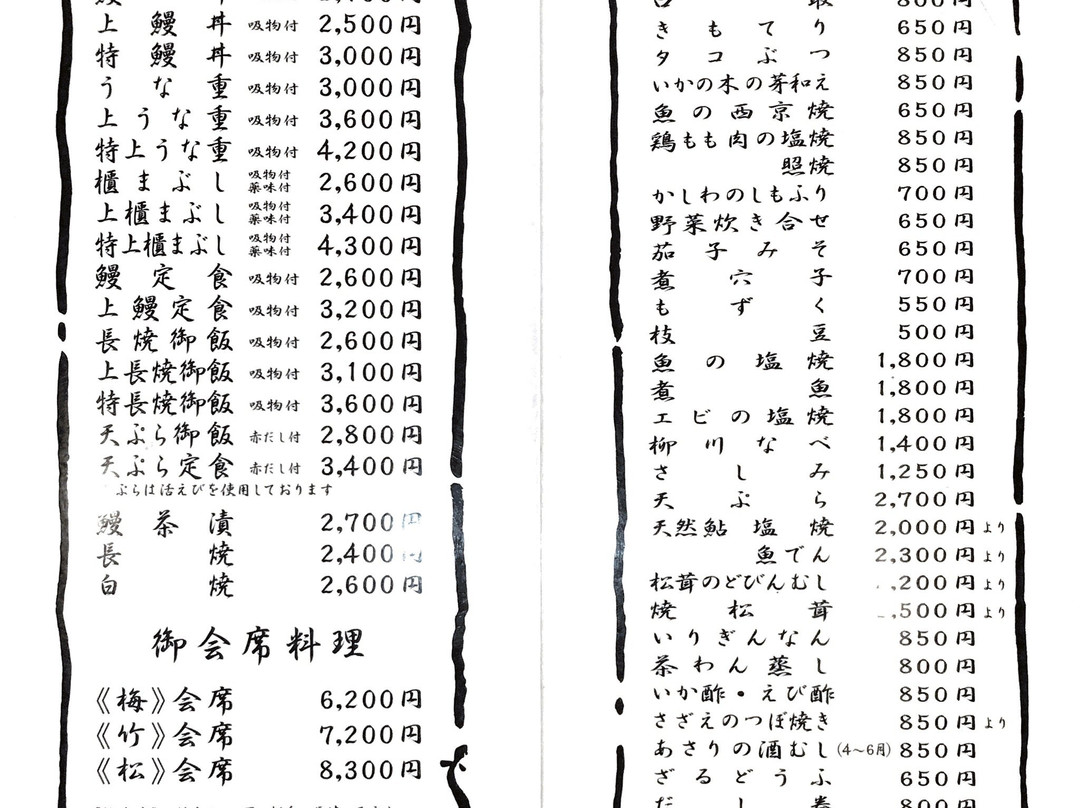 上鰻丼 吸物付 2,500円
特鰻丼 吸物付 3,000円
うな重 吸物付 3,000円
上うな重 吸物付 3,600円
特上うな重 吸物付 4,200円
櫃まぶし 吸物付 薬味付 2,600円
上櫃まぶし 吸物付 薬味付 3,400円
特上櫃まぶし 吸物付 薬味付 4,300円
鰻定食 吸物付 2,600円
上鰻定食 吸物付 3,200円
長焼御飯 吸物付 2,600円
上長焼御飯 吸物付 3,100円
特長焼御飯 吸物付 3,600円
天ぷら御飯 赤だし付 2,800円
天ぷら定食 赤だし付 3,400円
ぷらは活えびを使用しております
鰻茶漬 2,700円
長焼 2,400円
白焼 2,600円
御会席料理
《梅》会席 6,200円
《竹》会席 7,200円
《松》会席 8,300円
800円
きもてり 650円
タコぶつ 850円
いかの木の芽和え 850円
魚の西京焼 650円
鶏もも肉の塩焼 850円
照焼 850円
かしわのしもふり 700円
野菜炊き合せ 650円
茄子みそ 650円
煮穴子 700円
もずく 550円
枝豆 500円
魚の塩焼 1,800円
煮魚 1,800円
エビの塩焼 1,800円
柳川なべ 1,400円
さしみ 1,250円
天ぷら 2,700円
天然鮎塩焼 2,000円より
魚でん 2,300円より
松茸のどびんむし ,200円より
焼松茸 ,500円より
いりぎんなん 850円
茶わん蒸し 800円
いか酢・えび酢 850円
さざえのつぼ焼き 850円より
あさりの酒むし(4〜6月) 850円
ざるどうふ 650円
だし巻 800円